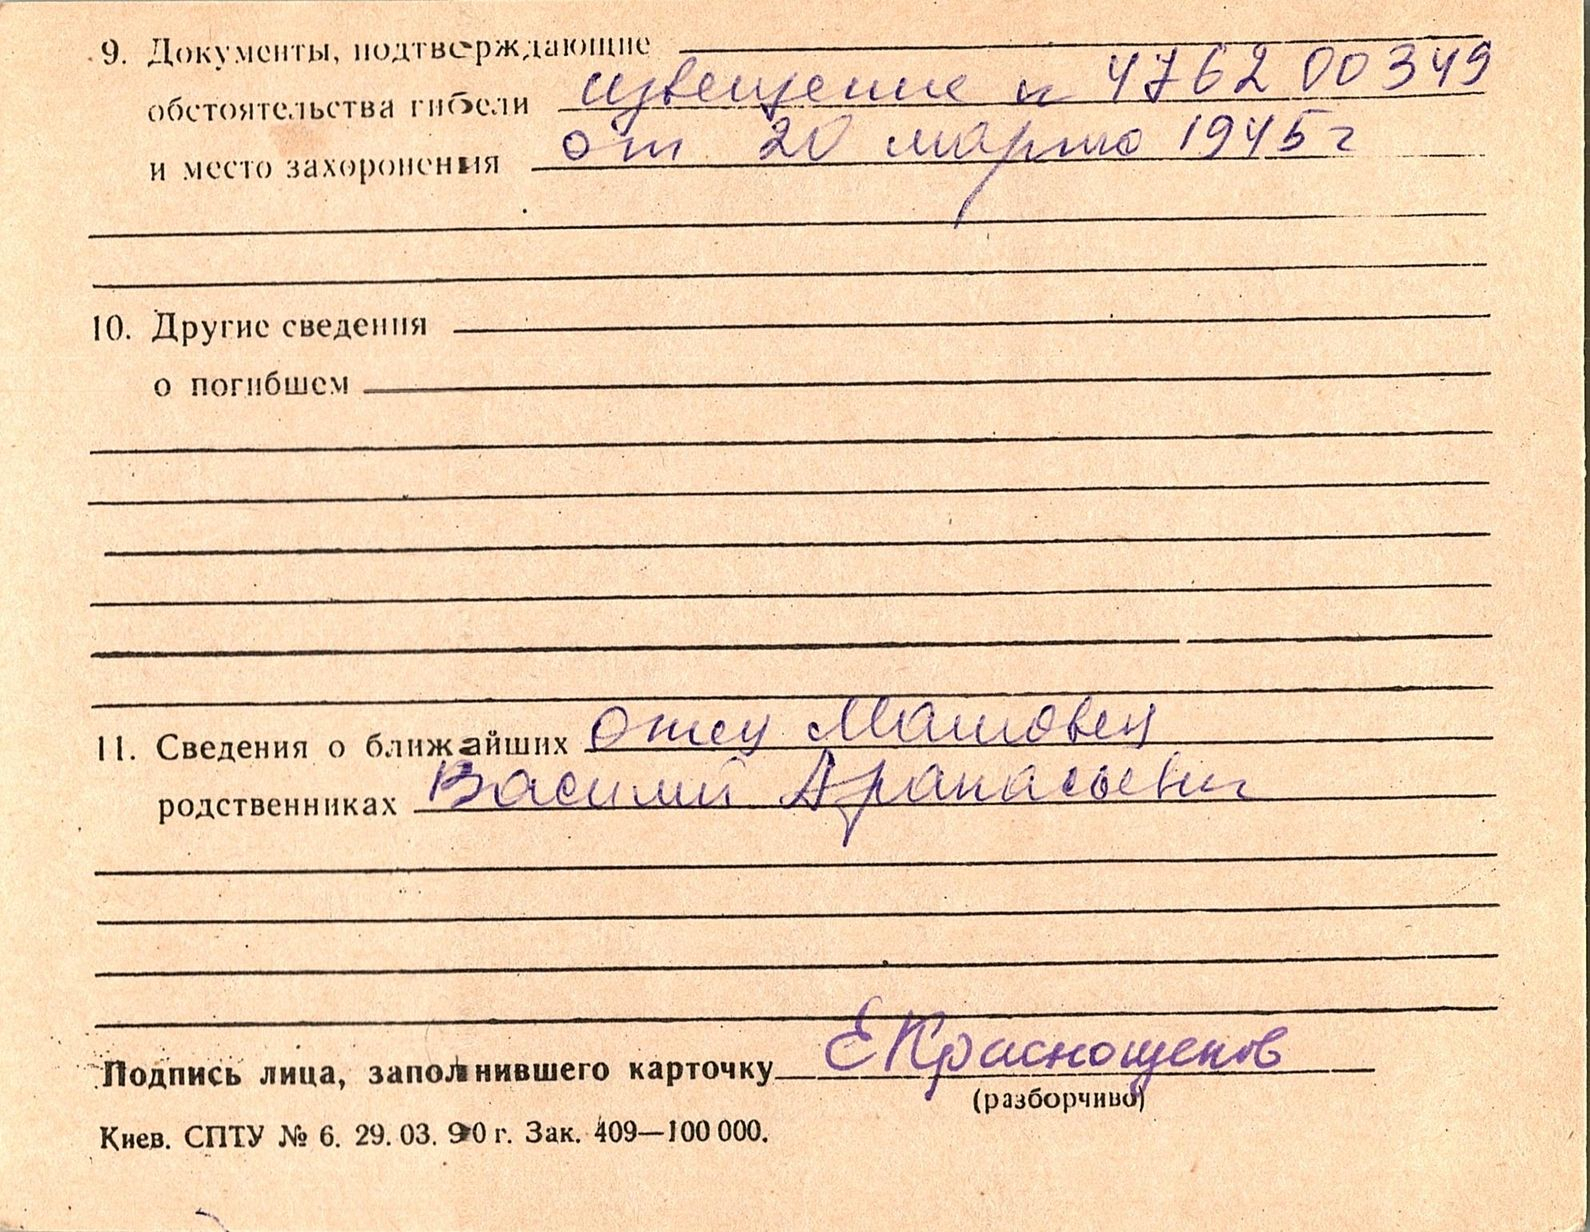 9. Документы, подтверждающие
извещение н 4762 00349
обстоятельства гибели
от 20 марта 1945 г
и место захоронения
10. Другие сведения
о погибшем
11. Сведения о ближайших отец Машовец
родственниках Василий Афанасьевич
Подпись лица, заполнившего карточку ЕКраснощеков
(разборчиво)
Киев. СПТУ № 6. 29. 03. 90 г. Зак. 409—100 000.